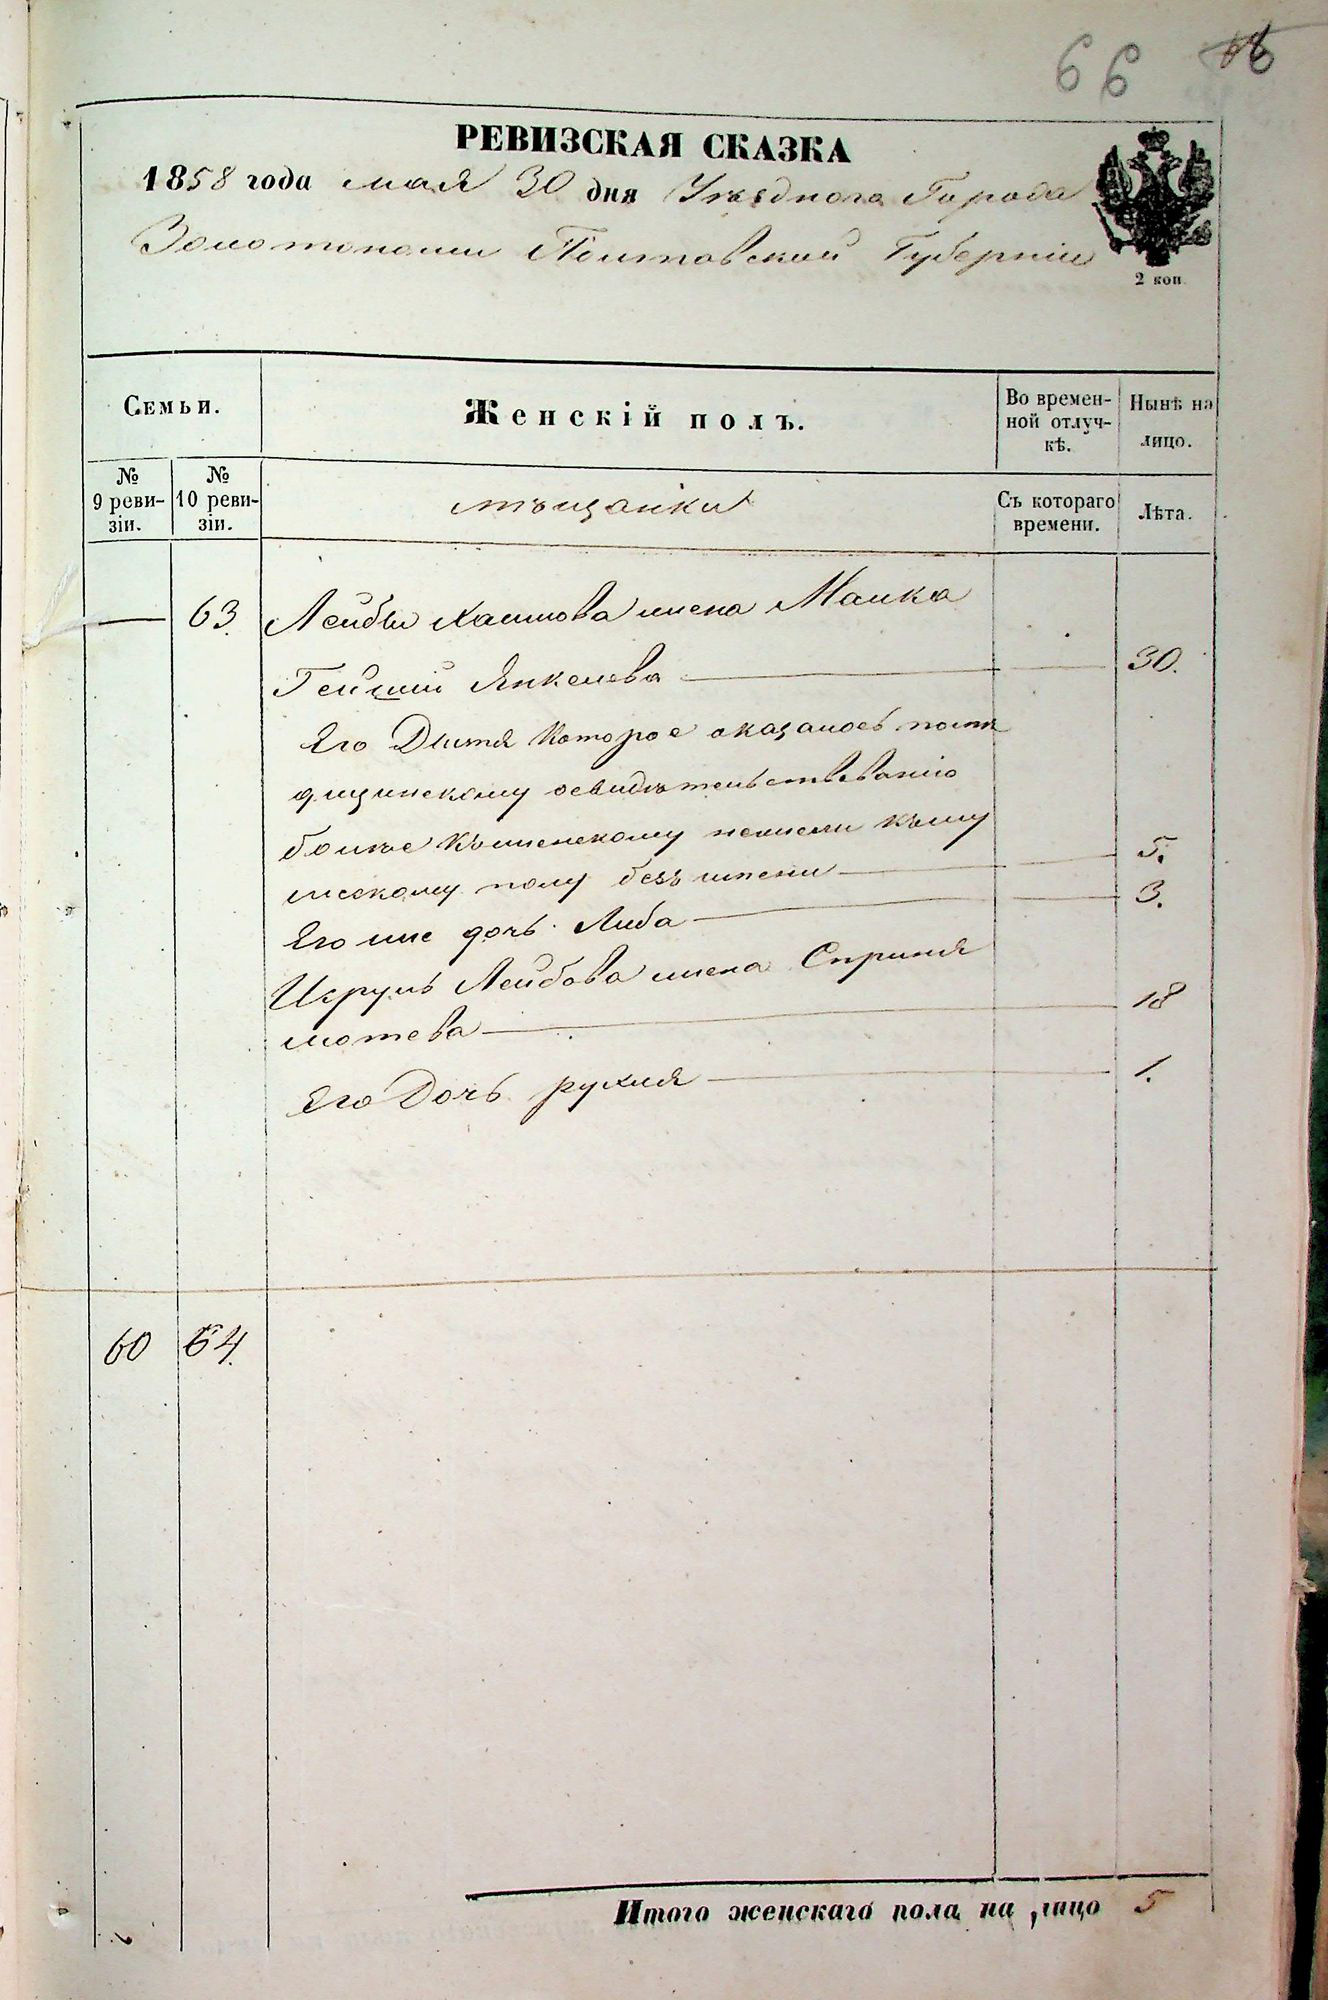 66
РЕВИЗСКАЯ СКАЗКА
1858 года мая 30 дня Уѣзднаго Города
Золотоноши Полтавской Губерніи
2 коп
Семьи.
Женскій полъ.
Во времен-
ной отлуч-
кѣ.
Нынѣ на
лицо.
№
9 реви-
зіи.
№
10 реви-
зіи.
мѣщанки
Съ котораго
времени.
Лѣта.
63. Лейбы Хаимова жена Малка
Янкелева 30.
Его Дитя которое оказалось по
освидѣтельствованію
болѣе къ женскому нежели къ му
жескому полу безъ имени 5.
Его же дочь Либа 3.
Исруль Лейбова жена Сприня
мотева 18
Его Дочь рухля 1.
60 64.
Итого женскаго пола на лицо 5